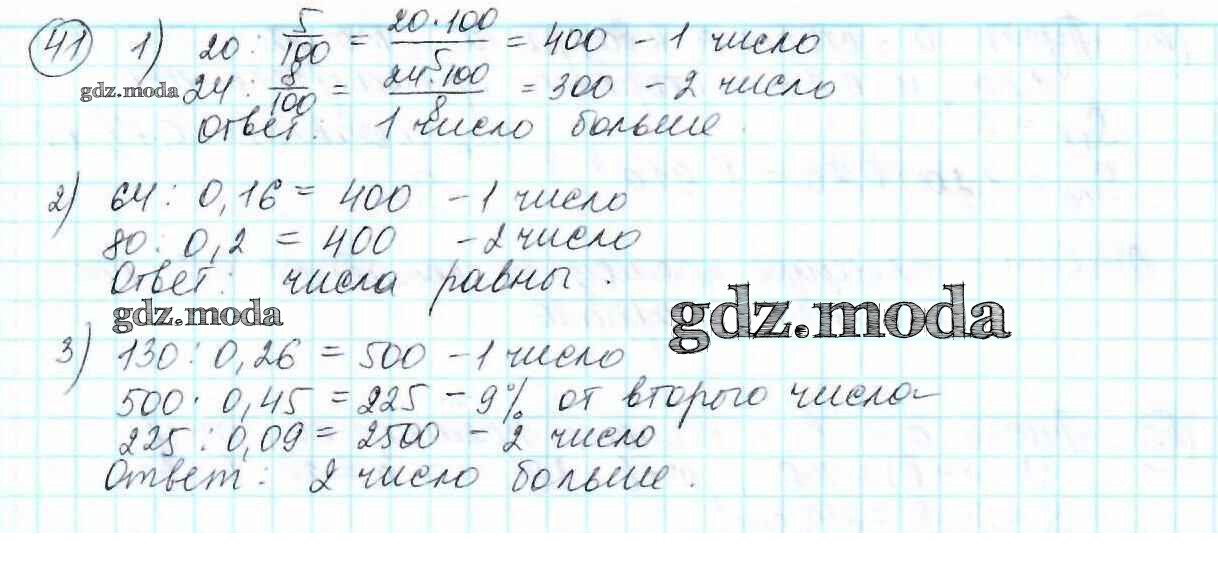 41 1) 20 : 5/100 = 20·100/5 = 400 – 1 число
gdz.moda 24 : 8/100 = 24·100/8 = 300 – 2 число
Ответ: 1 число больше.
2) 64 : 0,16 = 400 – 1 число
80 : 0,2 = 400 – 2 число
Ответ: числа равны.
gdz.moda
gdz.moda
3) 130 : 0,26 = 500 – 1 число
500 · 0,45 = 225 – 9% от второго числа
225 : 0,09 = 2500 – 2 число
Ответ: 2 число больше.